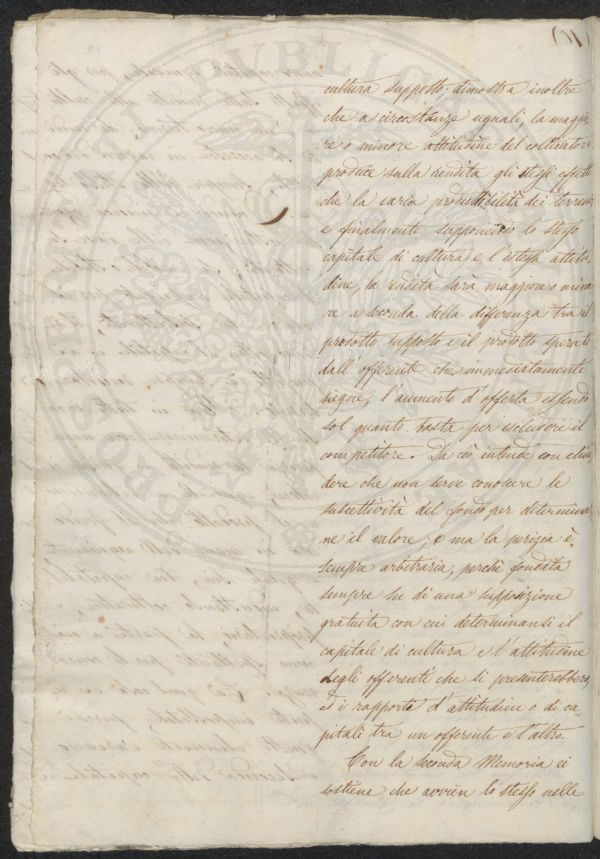 (10)
cultura supposto, dimostra inoltre
che a circostanze uguali, la maggio
re o minore attitudine del coltivatore
produce sulla rendita gli stessi effetti
che la varia produttibilità dei terreni,
e finalmente supponendo lo stesso
capitale di cultura e l'istessa attitu
dine, la rendita sarà maggiore o mino
re a seconda della differenza tra il
prodotto supposto e il prodotto sperato
dall'offerente che immediatamente
siegue, l'aumento d'offerta essendo
sol quanto basta per escludere il
competitore. Da ciò intende conchiu
dere che non serve conoscere le
suscettività del fondo per determinar
ne il valore; e ma la perizia è
sempre arbitraria, perchè fondata
sempre su di una supposizione
gratuita con cui determinansi il
capitale di cultura e l'attitudine
degli offerenti che si presenterebbero,
ed i rapporti d'attitudine o di ca-
pitali tra un offerente e l'altro.
Con la seconda Memoria ei
sostiene che avvien lo stesso nelle